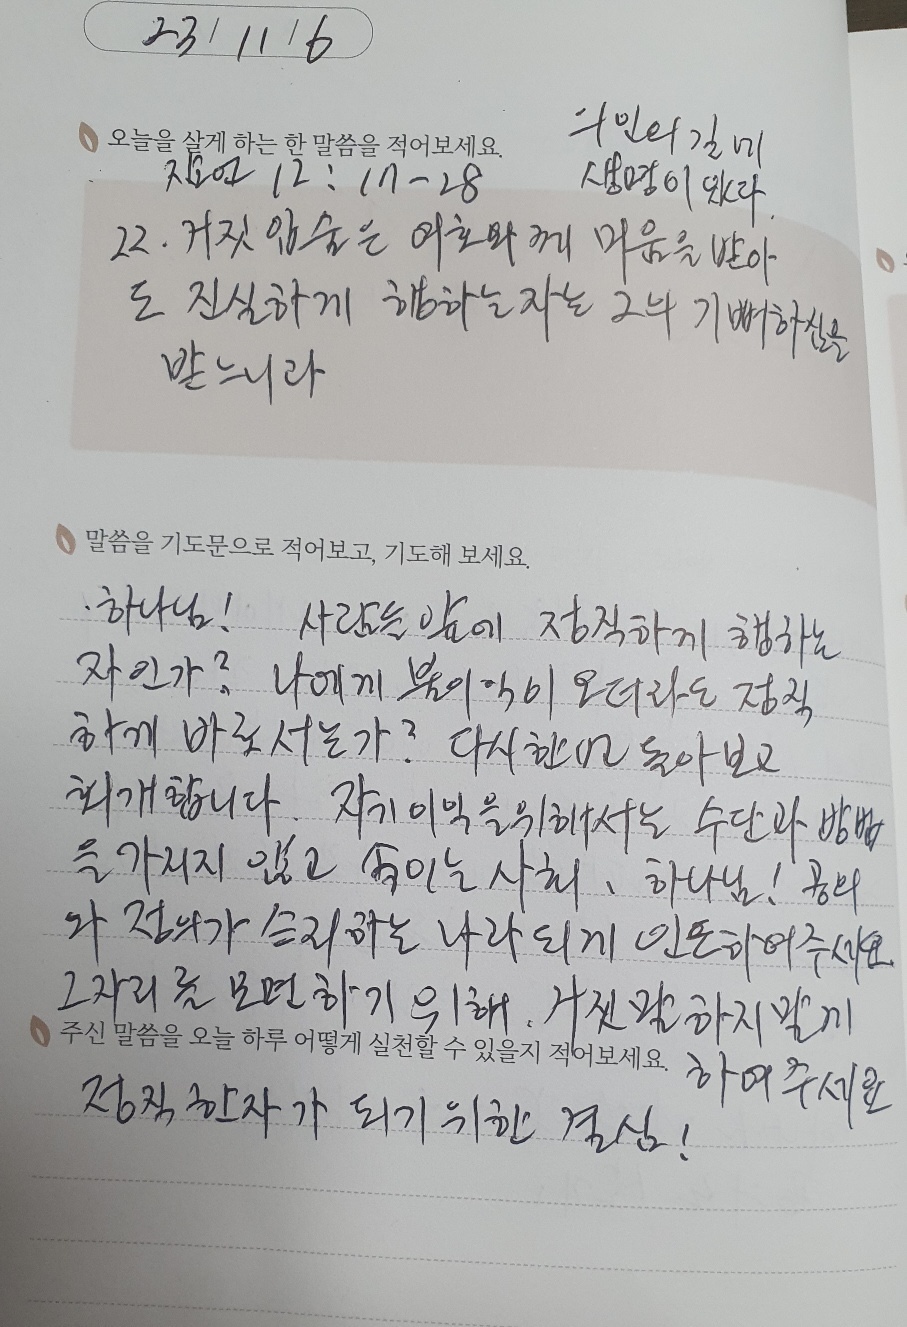 23/11/6
오늘을 살게 하는 한 말씀을 적어보세요.
의인의 길에
생명이 있다.
잠언 12:17-28
22. 거짓 입술은 여호와께 미움을 받아
도 진실하게 행하는자는 그의 기뻐하심을
받느니라
말씀을 기도문으로 적어보고, 기도해 보세요.
하나님! 사람들 앞에 정직하게 행하는
자인가? 나에게 불이익이 오더라도 정직
하게 바로서는가? 다시한번 돌아보고
회개합니다. 자기이익을위해서는 수단과 방법
을가리지 않고 속이는 사회, 하나님! 공의
와 정의가 승리하는 나라되게 인도하여주세요.
그자리를 모면하기 위해, 거짓말하지말게
하여주세요
주신 말씀을 오늘 하루 어떻게 실천할 수 있을지 적어보세요.
정직한자가 되기위한 결심!